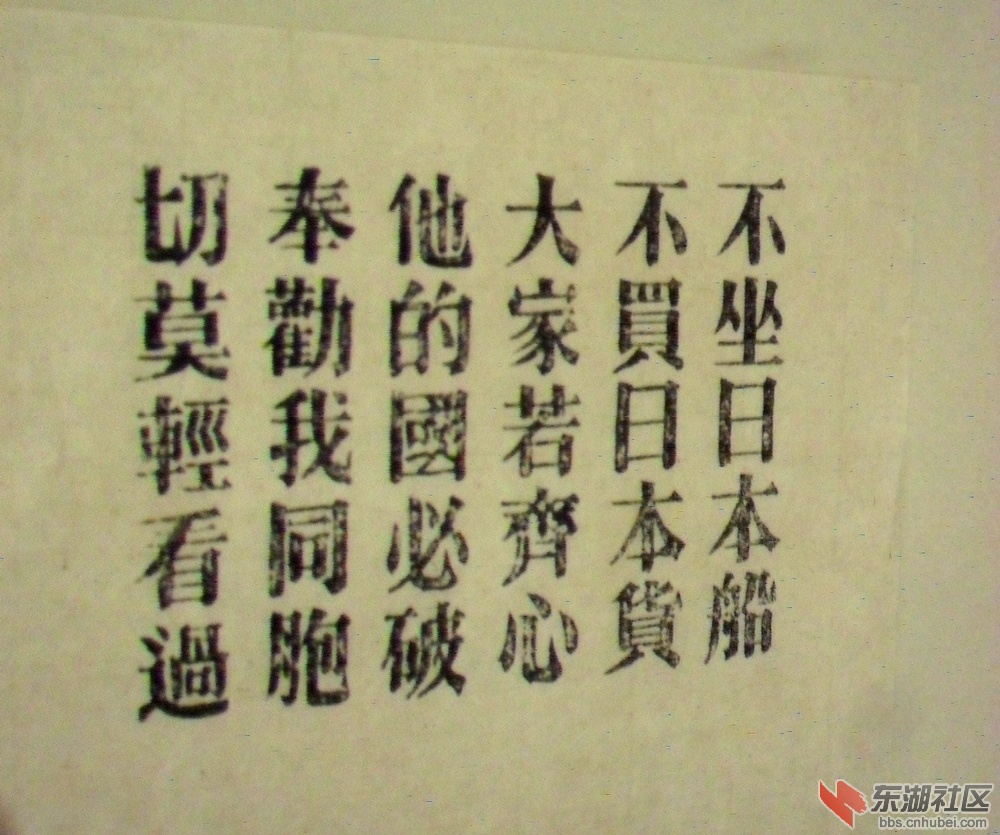 不坐日本船
不買日本貨
大家若齊心
他的國必破
奉勸我同胞
切莫輕看過
东湖社区
bbs.cnhubei.com